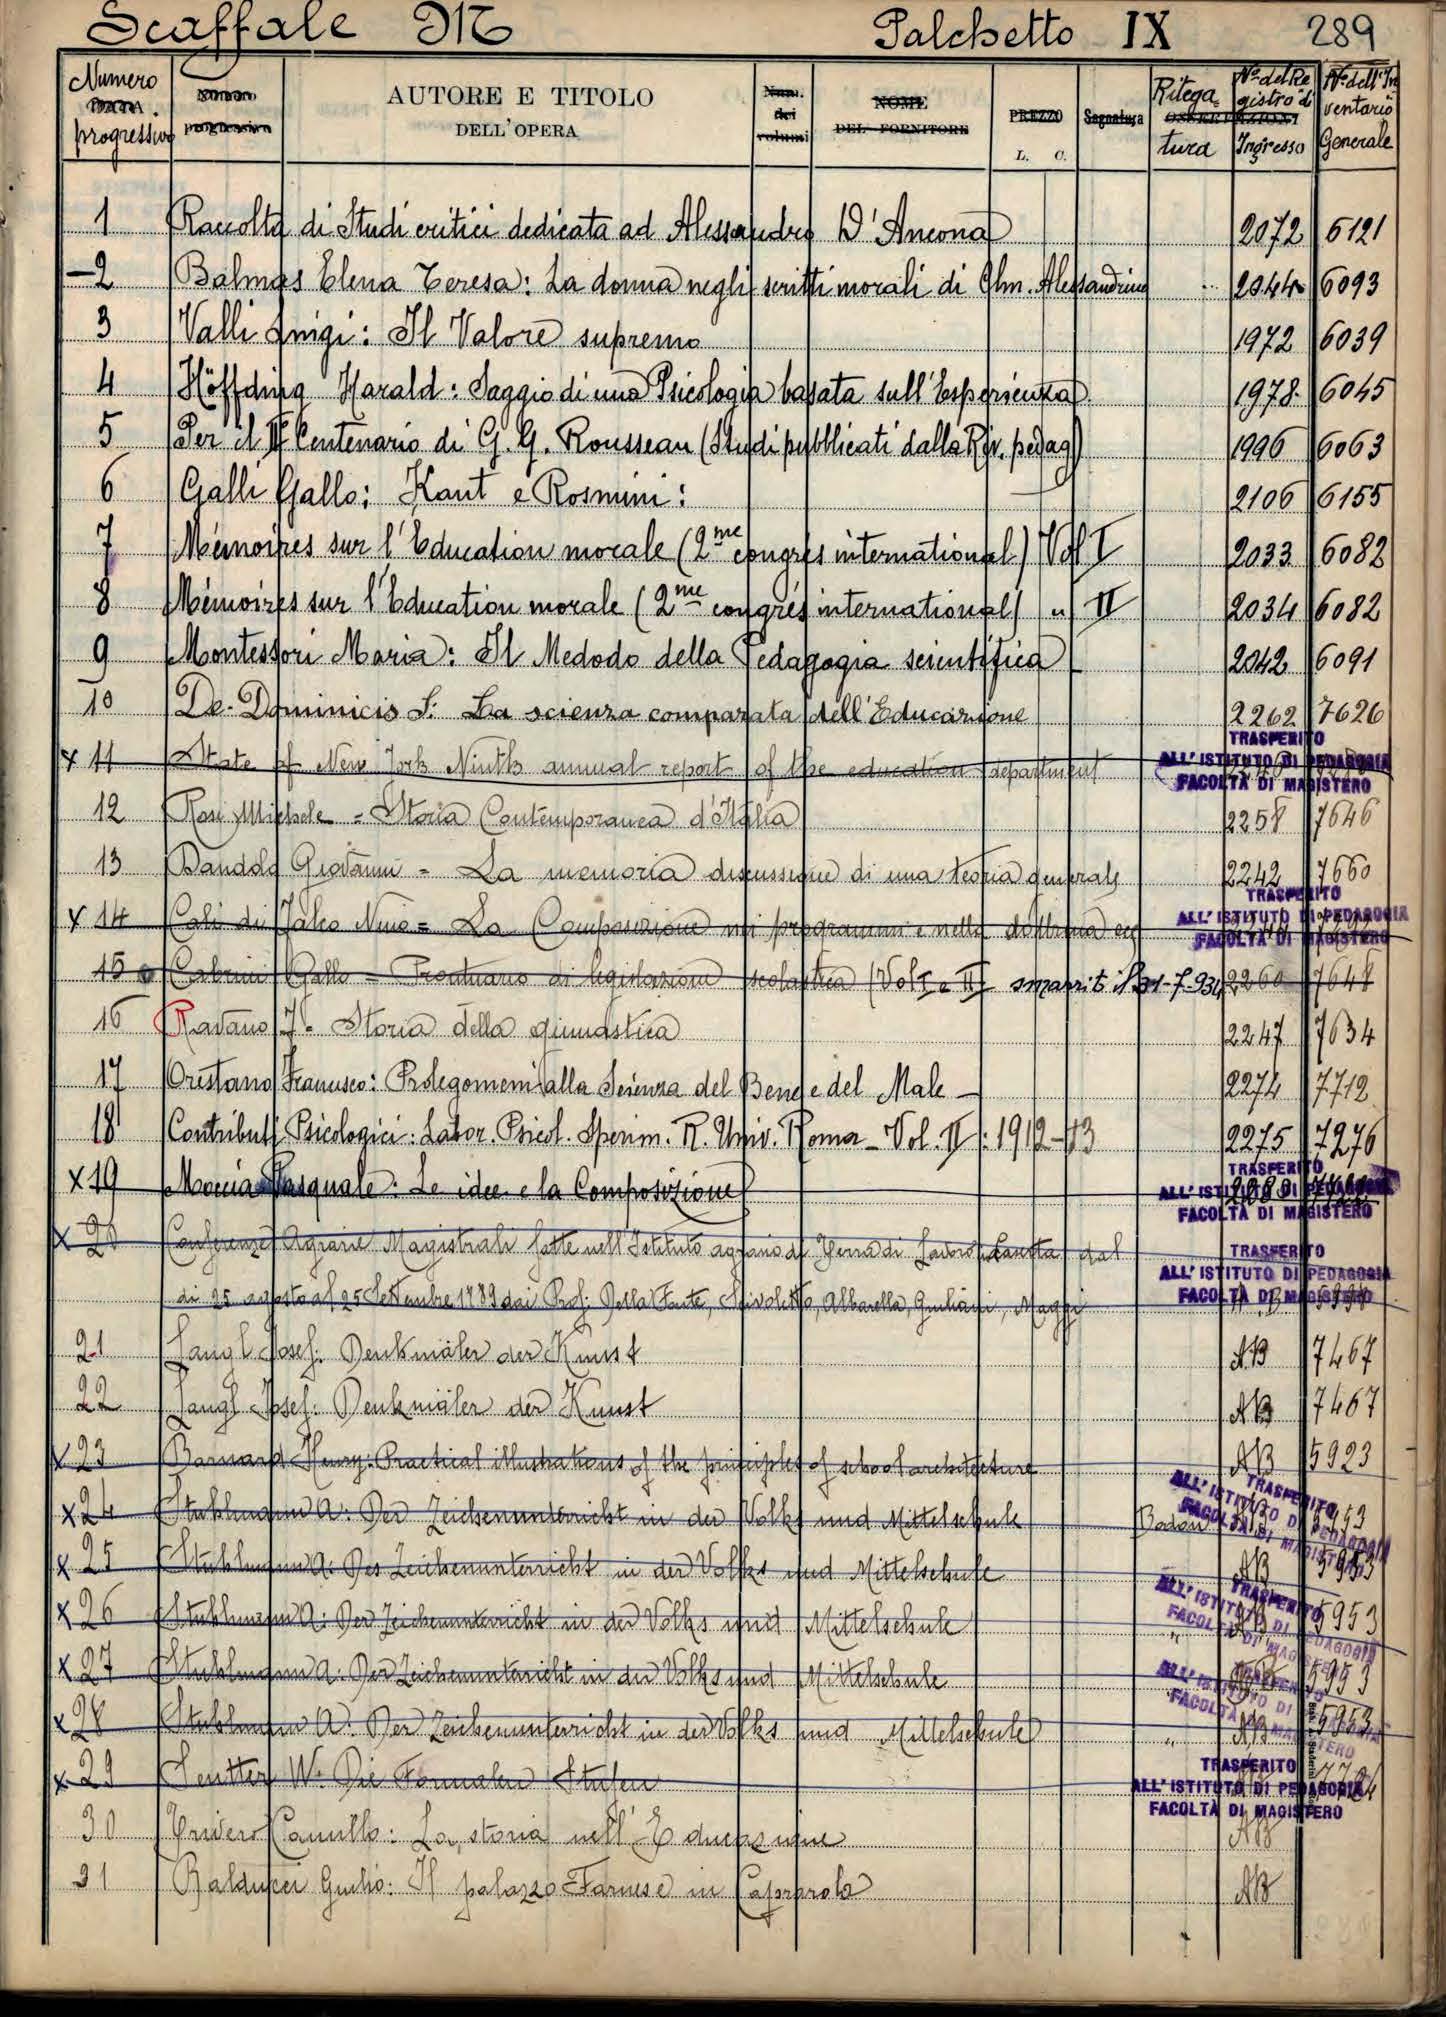 Scaffale M Palchetto IX 289
Numero progressivo AUTORE E TITOLO DELL'OPERA Num. dei volumi NOME DEL FORNITORE PREZZO L. C. Segnatura Rilegatura N° del Registro d'Ingresso N° dell'Inventario Generale
1 Raccolta di Studi critici dedicata ad Alessandro D'Ancona 2072 6121
2 Balmas Elena Teresa: La donna negli scritti morali di Clm. Alessandrino 2044 6093
3 Valli Luigi: Il Valore supremo 1972 6039
4 Höffding Harald: Saggio di una Psicologia basata sull'Esperienza 1978 6045
5 Per il II° Centenario di G. G. Rousseau (Studi pubblicati dalla Riv. pedag) 1996 6063
6 Galli Gallo: Kant e Rosmini: 2106 6155
7 Mémoires sur l'Education morale (2me congrès international) Vol I 2033 6082
8 Mémoires sur l'Education morale (2me congrès international) " II 2034 6082
9 Montessori Maria: Il Medodo della Pedagogia scientifica 2042 6091
10 De-Dominicis S: La scienza comparata dell'Educazione 2262 7626
x 11 State of New York Ninth annual report of the education department
TRASFERITO
ALL'ISTITUTO DI PEDAGOGIA
FACOLTÀ DI MAGISTERO
12 Rosi Michele = Storia Contemporanea d'Italia 2258 7646
13 Dandolo Giovanni = La memoria discussione di una teoria generale 2242 7660
x 14 Calì di Falco Nino = La Composizione nei programmi e nella dottrina ecc
TRASFERITO
ALL'ISTITUTO DI PEDAGOGIA
FACOLTÀ DI MAGISTERO
15 Cabrini Gallo = Prontuario di legislazione scolastica (Vol I e II) smarriti il 31-7-934 2260 7648
16 Ravano J = Storia della ginnastica 2247 7634
17 Orestano Francesco: Prolegomeni alla Scienza del Bene e del Male - 2274 7712
18 Contributi Psicologici: Labor. Psicol. Sperim. R. Univ. Roma - Vol. II: 1912-13 2275 7276
x 19 Moccia Pasquale: Le idee e la Composizione
TRASFERITO
ALL'ISTITUTO DI PEDAGOGIA
FACOLTÀ DI MAGISTERO
x 20 Conferenze Agrarie Magistrali fatte nell'Istituto agrario di Terra di Lavoro in Caserta dal
di 25 agosto al 25 Settembre 1889 dai Prof: Della Fonte, Albarella, Giuliani, Maggi
TRASFERITO
ALL'ISTITUTO DI PEDAGOGIA
FACOLTÀ DI MAGISTERO
21 Langl Josef: Denkmäler der Kunst AB 7467
22 Langl Josef: Denkmäler der Kunst AB 7467
x 23 Barnard Henry: Practical illustrations of the principles of school architecture AB 5923
x 24 Stuhlmann A: Der Zeichenunterricht in der Volks und Mittelschule 5953
TRASFERITO
ALL'ISTITUTO DI PEDAGOGIA
FACOLTÀ DI MAGISTERO
x 25 Stuhlmann A: Der Zeichenunterricht in der Volks und Mittelschule AB 5953
x 26 Stuhlmann A: Der Zeichenunterricht in der Volks und Mittelschule " AB 5953
TRASFERITO
ALL'ISTITUTO DI PEDAGOGIA
FACOLTÀ DI MAGISTERO
x 27 Stuhlmann A: Der Zeichenunterricht in der Volks und Mittelschule " AB 5953
TRASFERITO
ALL'ISTITUTO DI PEDAGOGIA
FACOLTÀ DI MAGISTERO
x 28 Stuhlmann A: Der Zeichenunterricht in der Volks und Mittelschule " AB 5953
x 29 Seutter W. Die Formalen Stufen
TRASFERITO
ALL'ISTITUTO DI PEDAGOGIA
FACOLTÀ DI MAGISTERO
30 Trivero Camillo: La storia nell'Educazione AB
31 Balducci Giulio: Il palazzo Farnese in Caprarola AB